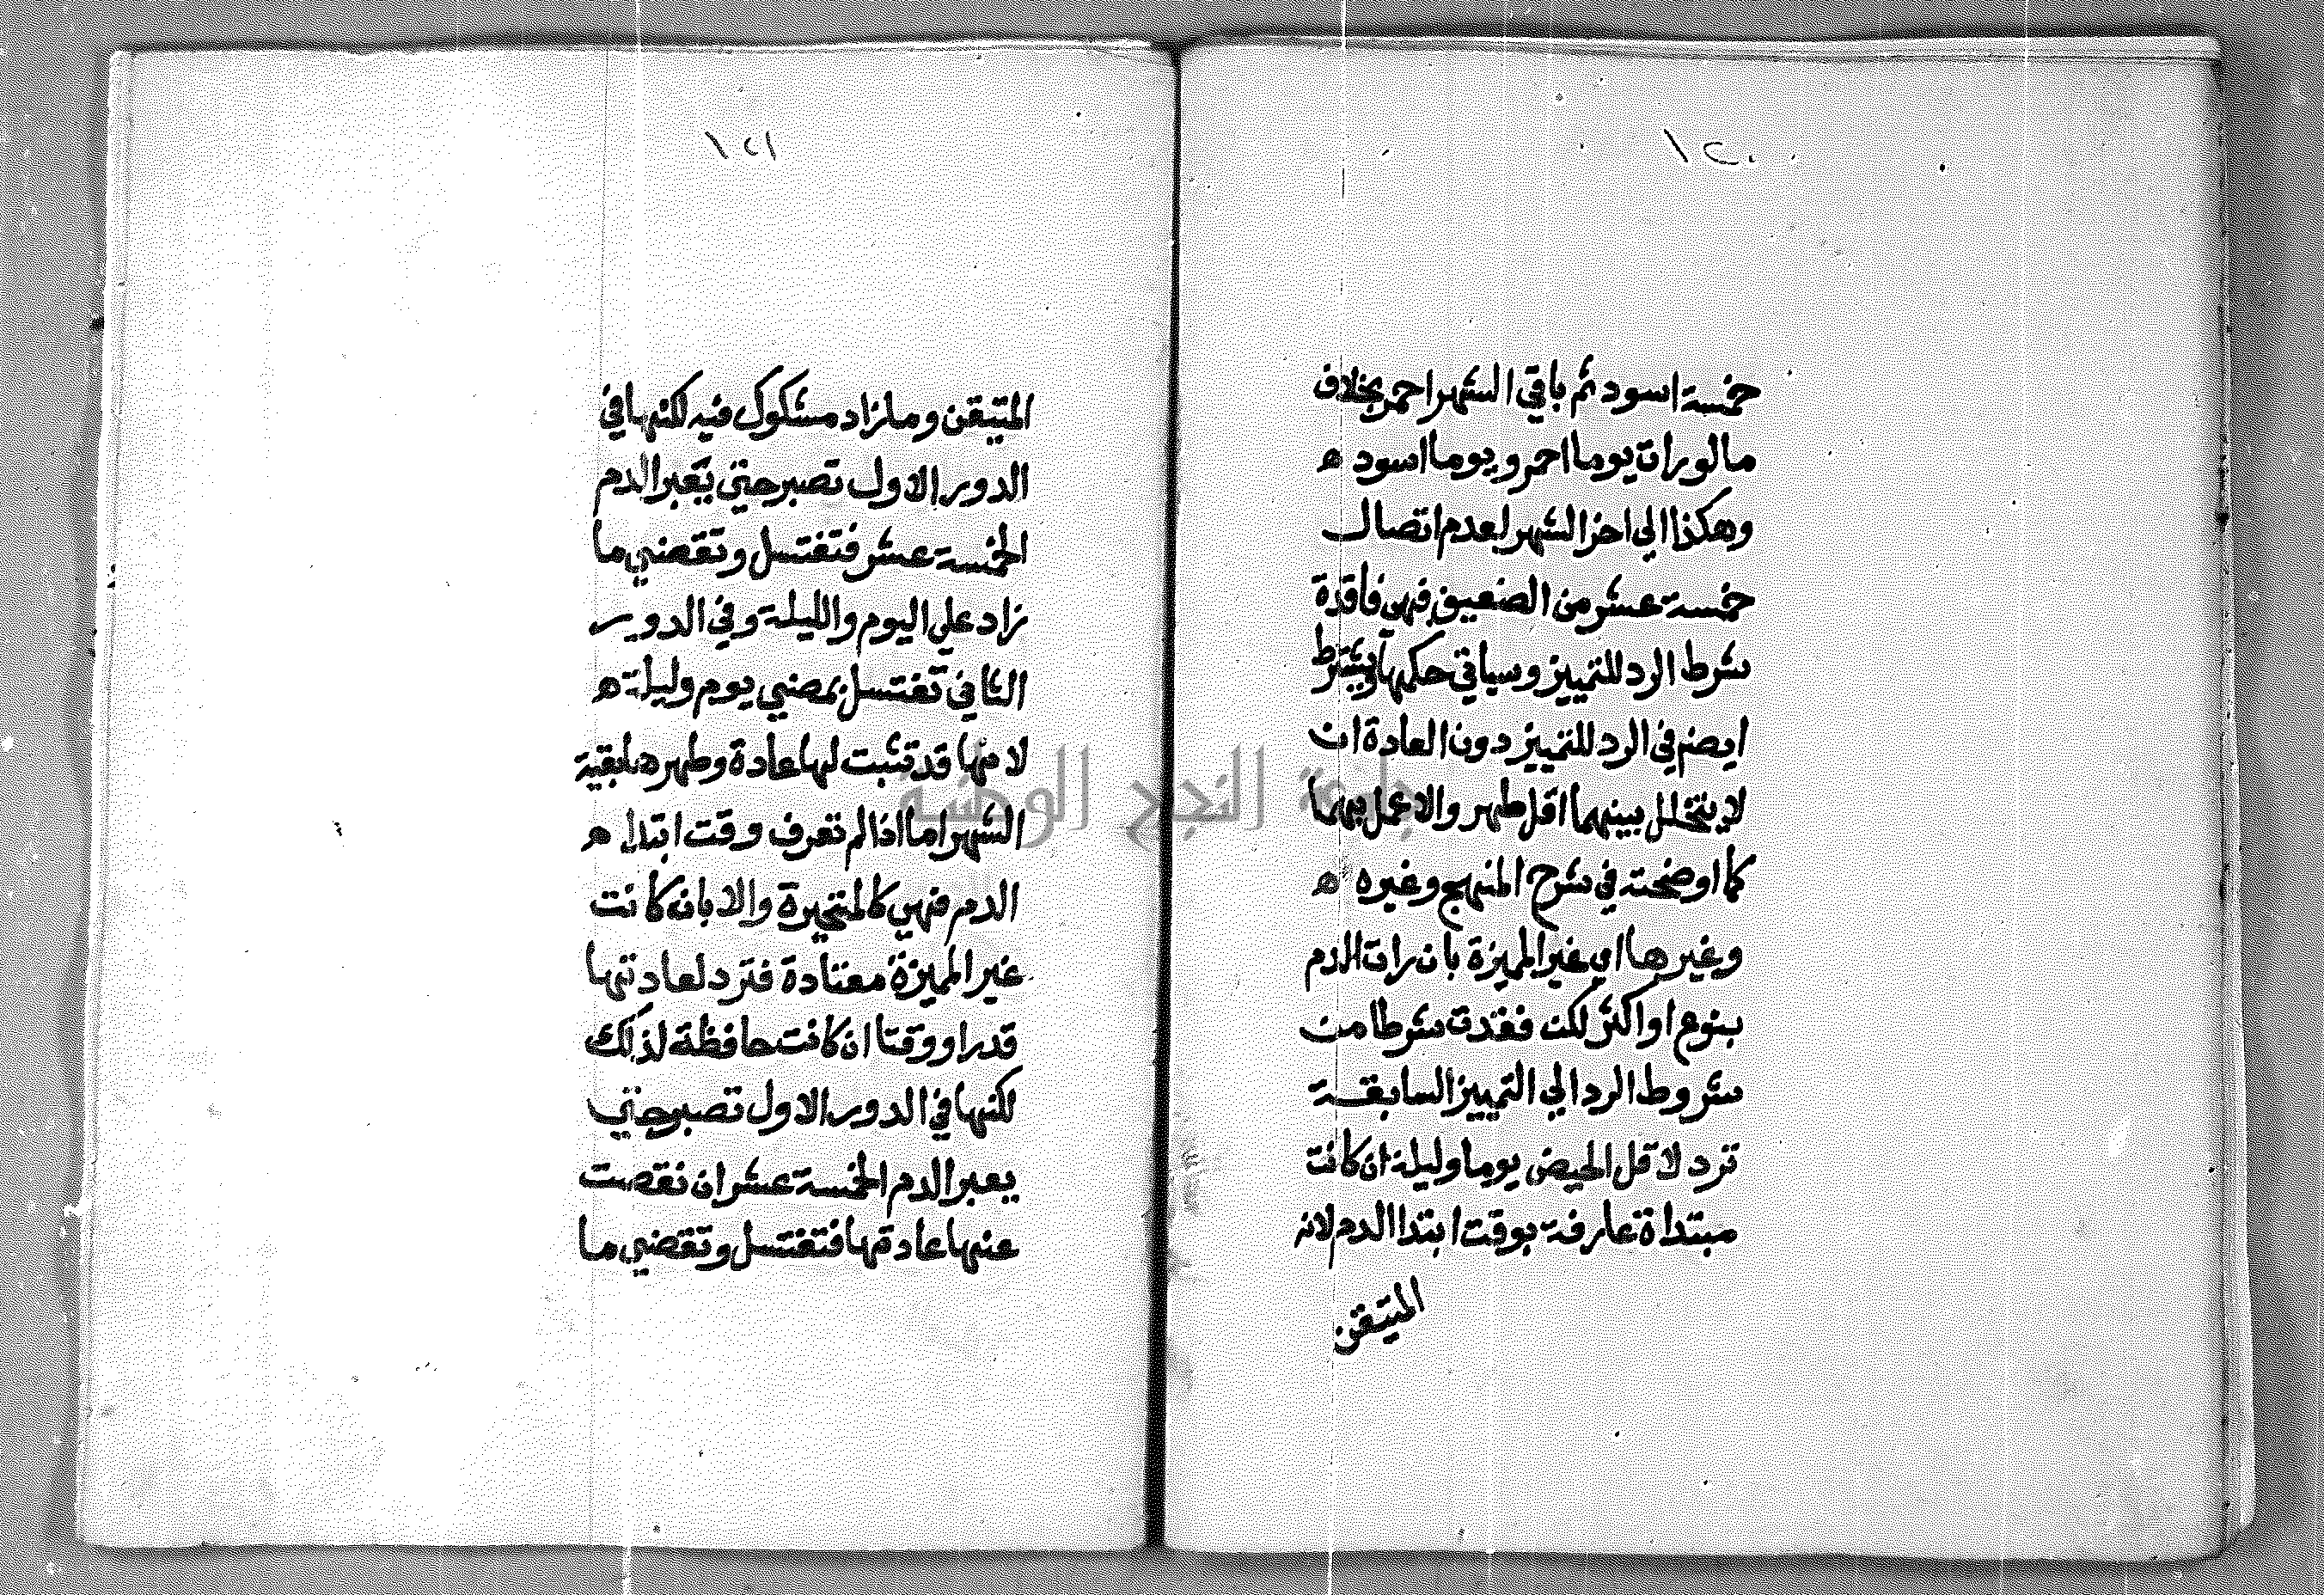 ١٢٠
خمسة اسود ثم باقي الشهر احمر بخلاف
ما لو رات يوما احمر ويوما اسود ه
وهكذا الي اخر الشهر لعدم اتصال
خمسة عشر من الضعيف فهي فاقدة
شرط الرد للتمييز وسياتي حكمها ويشترط
ايضا في الرد للتمييز دون العادة ان
لا يتخلل بينهما اقل طهر والا عمل بهما
كما اوضحته في شرح المنهج وغيره ه
وغيرها اي غير المميزة بان رات الدم
بنوع او اكثر لكن فقدت شرطا من
شروط الرد الي التمييز السابقة
ترد لاقل الحيض يوما وليلة ان كانت
مبتداة عارفة بوقت ابتدا الدم لانه
المتيقن
١٢١
المتيقن وما زاد مشكوك فيه لكنها في
الدور الاول تصبر حتي يعبر الدم
الخمسة عشر فتغتسل وتقضي ما
زاد علي اليوم والليلة وفي الدور
الثاني تغتسل بمضي يوم وليلة ه
لانها قد تثبت لها عادة وطهرها بقية
الشهر اما اذا لم تعرف وقت ابتدا ه
الدم فهي كالمتحيرة والا بان كانت
غير المميزة معتادة فترد لعادتها
قدرا ووقتا ان كانت حافظة لذلك
لكنها في الدور الاول تصبر حتي
يعبر الدم الخمسة عشر ان نقصت
عنها عادتها فتغتسل وتقضي ما
جامعة النجاح الوطنية